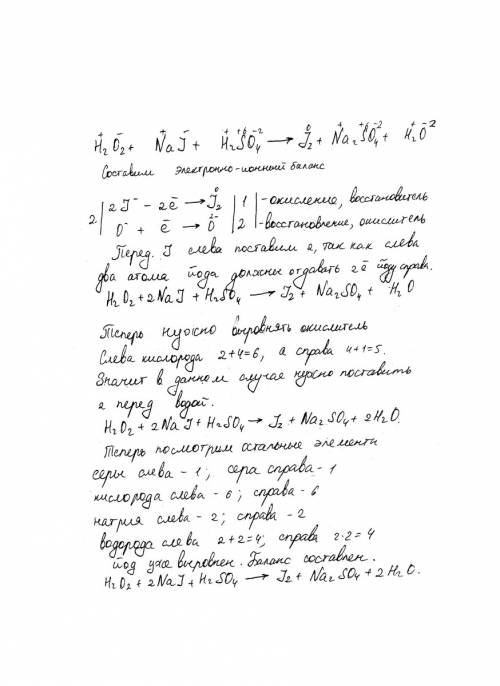 H₂⁺O₂⁻ + Na⁺J⁻ + H₂⁺S⁺⁶O₄⁻² → J₂⁰ + Na₂⁺S⁺⁶O₄⁻² + H₂⁺O⁻²
Составим электронно-ионный баланс
2 | 2J⁻ - 2ē → J₂⁰ | 1 | - окисление, восстановитель
O⁻ + ē → O²⁻ | 2 | - восстановление, окислитель
Перед. J слева поставим 2, так как слева
два атома йода должны отдавать 2ē йоду справа.
H₂O₂ + 2NaJ + H₂SO₄ → J₂ + Na₂SO₄ + H₂O
Теперь нужно выровнять окислитель
Слева кислорода 2+4=6, а справа 4+1=5.
Значит в данном случае нужно поставить
2 перед водой.
H₂O₂ + 2NaJ + H₂SO₄ → J₂ + Na₂SO₄ + 2H₂O.
Теперь посмотрим остальные элементы
серы слева - 1; сера справа - 1
кислорода слева - 6; справа - 6
натрия слева - 2; справа - 2
водорода слева 2+2=4; справа 2·2=4
йод уже выровнен. Баланс составлен.
H₂O₂ + 2NaJ + H₂SO₄ → J₂ + Na₂SO₄ + 2H₂O.